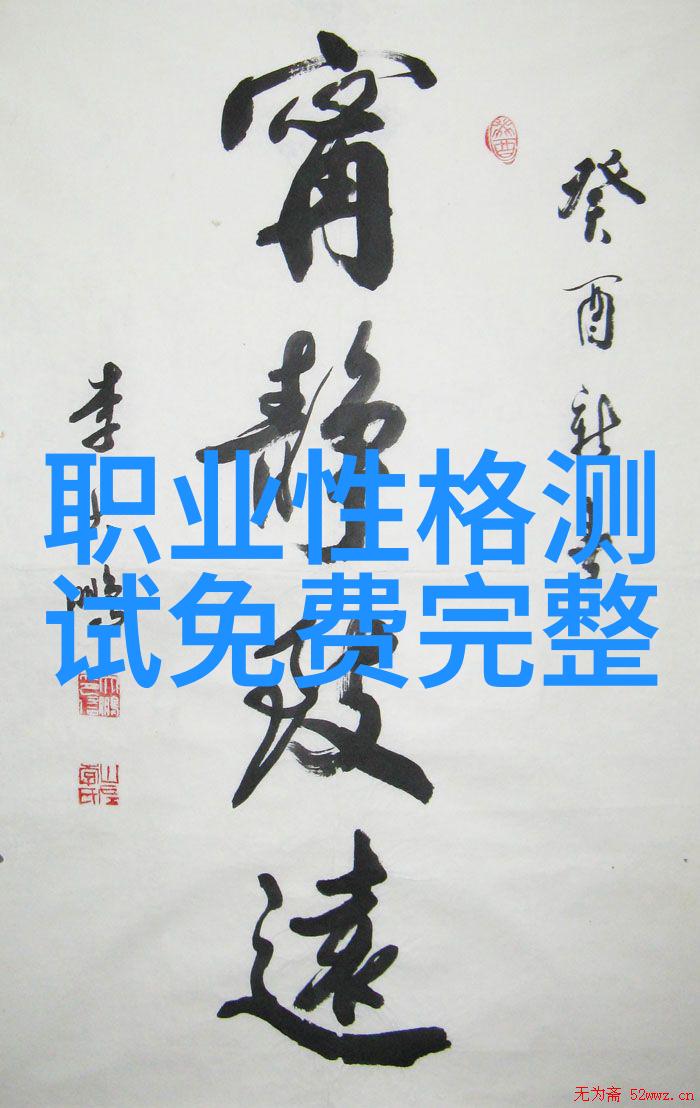 癸酉新春
甯靜致遠
李大鵬
职业性格测
试免费完整
无为斋 52wwz.cn